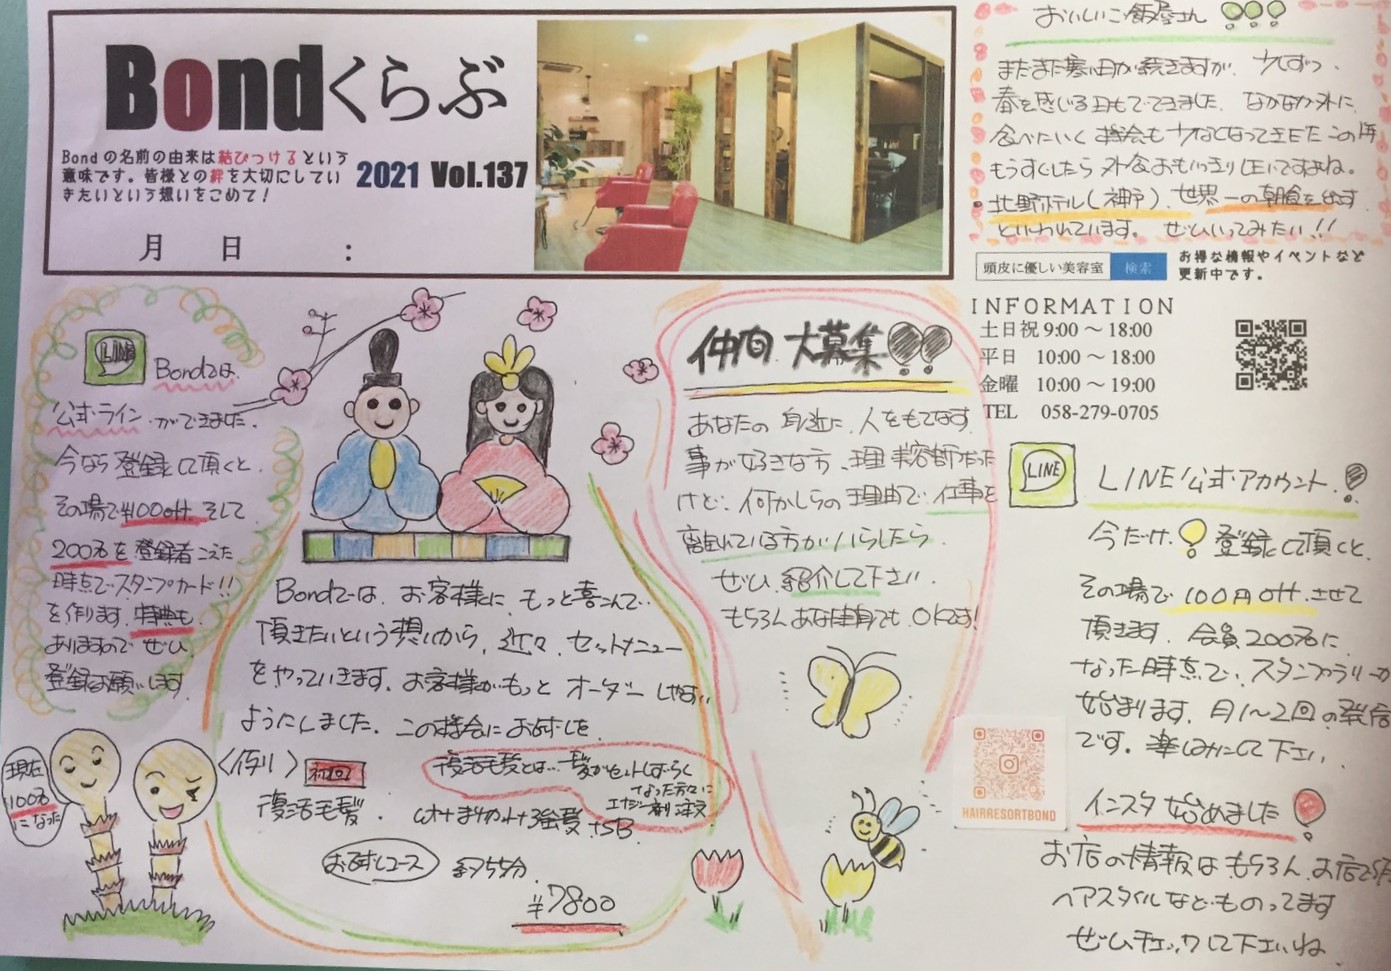 Bondくらぶ
Bondの名前の由来は結びつけるという
意味です。皆様との絆を大切にしてい
きたいという想いをこめて！
2021 Vol.137
月 日 :
おいしいご飯屋さん
まだまだ寒い日が続きますが、少しずつ、
春を感じる日もでてきました。なかなか外に、
食べにいく機会も少なくなってきたこの1年
もう少ししたら外食おもいっきりしたいですよね。
北野ホテル(神戸)世界一の朝食を出す
といわれています。ぜひいってみたい!!
頭皮に優しい美容室 検索
お得な情報やイベントなど
更新中です。
INFORMATION
土日祝 9:00 ～ 18:00
平日 10:00 ～ 18:00
金曜 10:00 ～ 19:00
TEL 058-279-0705
LINE
Bondでは、
公式ラインができました。
今なら登録して頂くと、
その場で¥100off そして
200名を登録者こえた
時点でスタンプカード!!
を作ります。特典も
ありますので ぜひ
登録お願いします
現在
100名
になった
Bondでは、お客様に、もっと喜こんで
頂きたいという想いから、近々、セットメニュー
をやっていきます。お客様がもっとオーダーしやすい
ようにしました。この機会にお試しを
〈例〉 初回
復活毛髪
復活毛髪とは…髪がセットしずらく
なった方々に
エナジー剤注入
お試しコース 約55分
¥7800
仲間 大募集!!
あなたの身近に、人をもてなす
事が好きな方、理美容師だった
けど、何かしらの理由で仕事を
離れている方がいらしたら
ぜひ紹介して下さい。
もちろんあなた自身でも OKです!
LINE
LINE公式アカウント!
今だけ!登録して頂くと、
その場で100円off させて
頂きます。会員200名に
なった時点で、スタンプラリーが
始まります。月1～2回の発信
です。楽しみにして下さい。
HAIRRESORTBOND
インスタ始めました!
お店の情報はもちろん、お店で
ヘアスタイルなどものってます
ぜひチェックして下さいね